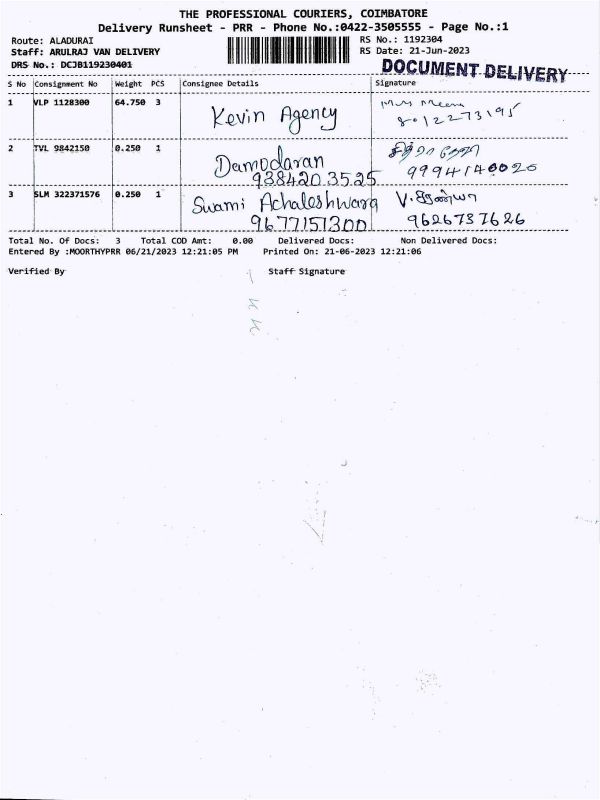 THE PROFESSIONAL COURIERS, COIMBATORE
Delivery Runsheet - PRR - Phone No.:0422-3505555 - Page No.:1
Route: ALADURAI
RS No.: 1192304
Staff: ARULRAJ VAN DELIVERY
RS Date: 21-Jun-2023
DRS No.: DCJB119230401
DOCUMENT DELIVERY
S No Consignment No Weight PCS Consignee Details Signature
1 VLP 1128300 64.750 3 Kevin Agency
8012273195
2 TVL 9842150 0.250 1 Damodaran
9384203525 9994140020
3 SLM 322371576 0.250 1 Swami Achaleshwara V.
9677151300 9626737626
Total No. Of Docs: 3 Total COD Amt: 0.00 Delivered Docs: Non Delivered Docs:
Entered By :MOORTHYPRR 06/21/2023 12:21:05 PM Printed On: 21-06-2023 12:21:06
Verified By Staff Signature